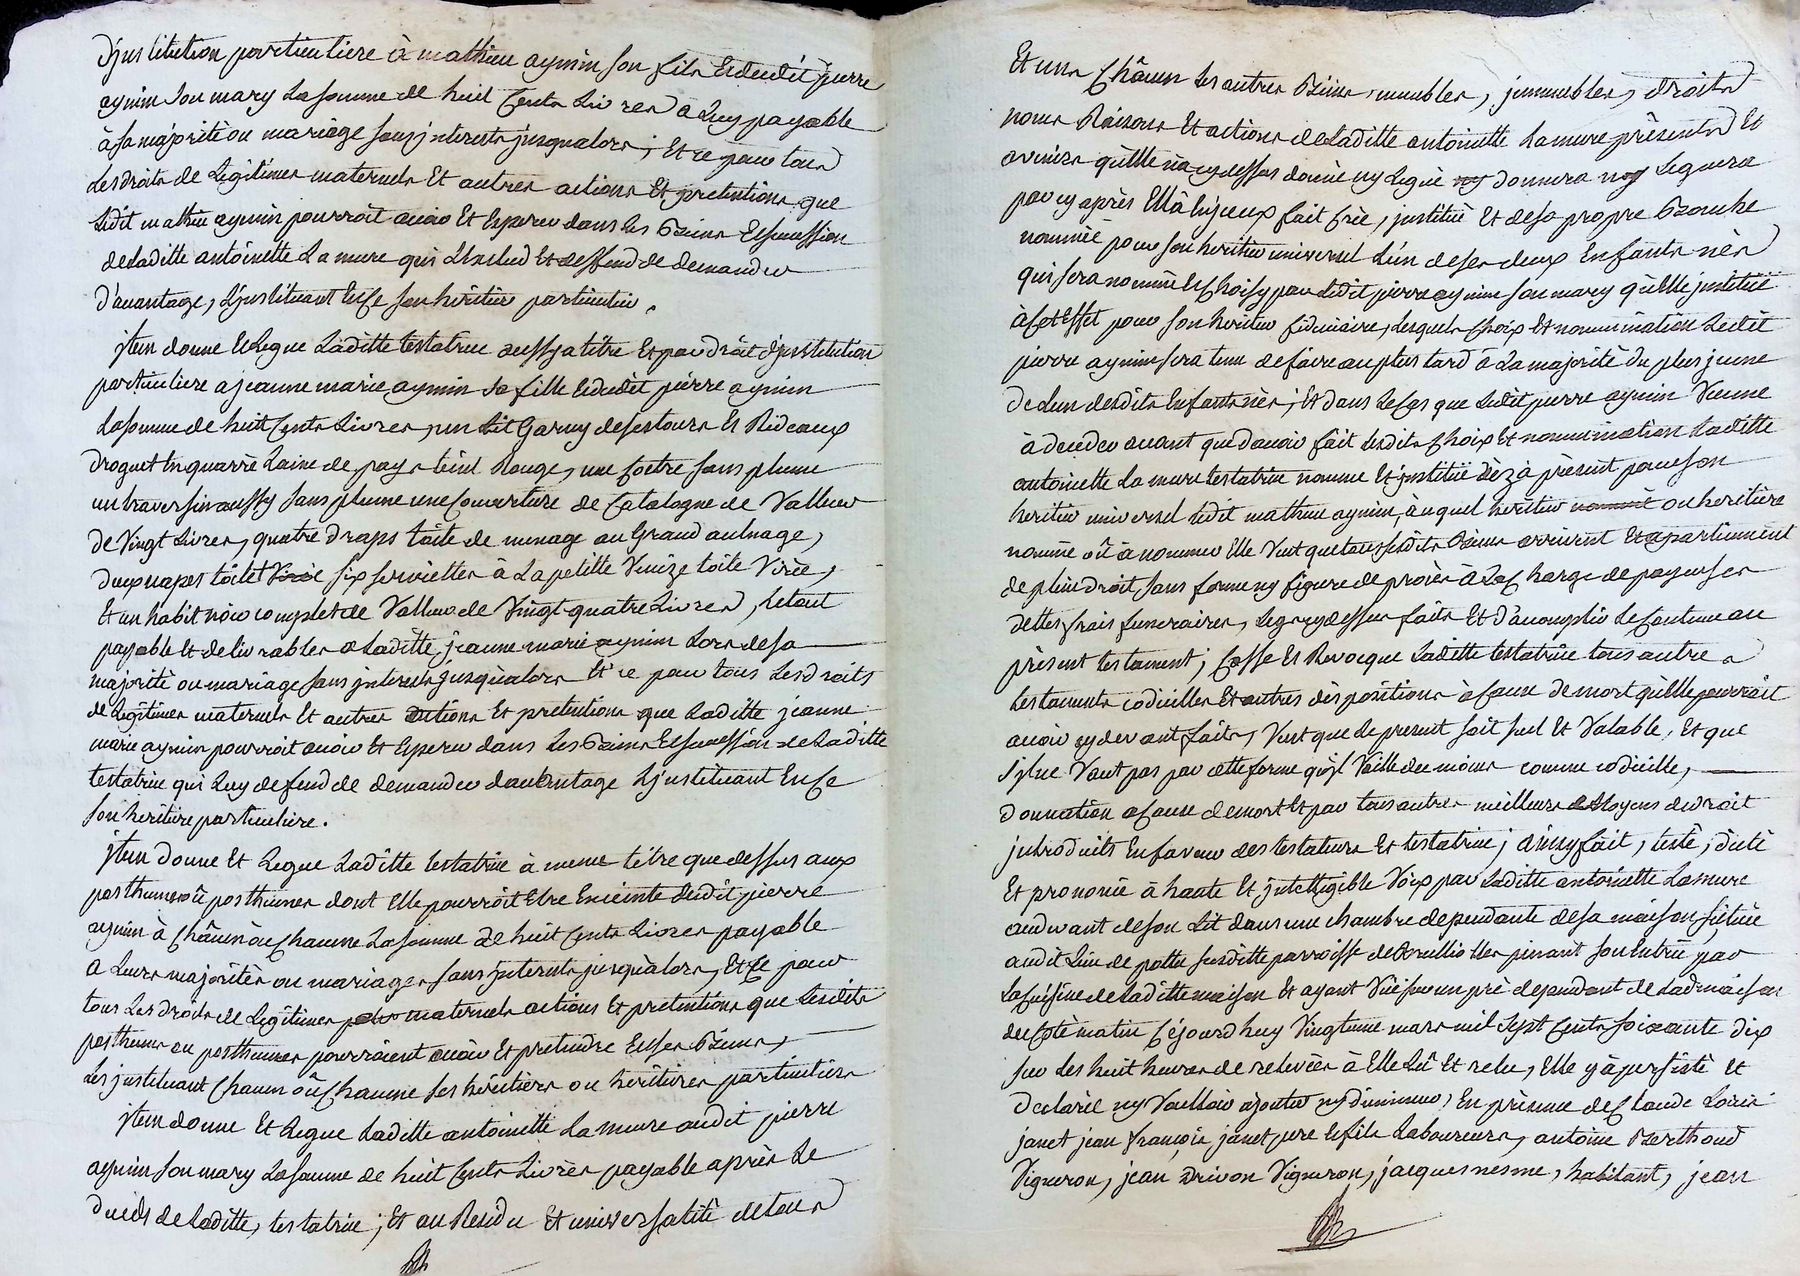 d'jnstitution particuliere à mathieu aymin son fils Et dudit pierre
aymin son mary La somme de huit Cents Livres a Luy payable
à sa majorité ou mariage sans jnterests jusqualors; Et ce pour tous
Les droits de Legitimes maternels Et autres actions Et pretentions que
Ledit mathieu aymin pourroit avoir Et Esperer dans Les Biens Et succession
de Laditte antoinette La mure qui L'Exclud Et deffend de demander
d'avantage, L'jnstituant En Ce son héritier particulier.
jtem donne Et Legue Laditte testatrice aussy a titre Et par droit d'jnstitution
particuliere a jeanne marie aymin sa fille Et dudit pierre aymin
La somme de huit Cents Livres, un Lit Garny de ses tours Et Rideaux
droguet En quarré Laine de pays teint Rouge, une Coetre sans plume
un traversin aussy sans plume une Couverture de Catalogne de Valleur
de Vingt Livres, quatre draps toile de menage au Grand aulnage,
deux napes toile Virée six serviettes à La petitte Venize toile Virée,
Et un habit noir complet de Valleur de Vingt quatre Livres, Le tout
payable Et delivrables a Laditte jeanne marie aymin Lors de sa
majorité ou mariage sans jnterests jusqu'alors Et ce pour tous Les droits
de Legitimes maternels Et autres actions Et pretentions que Laditte jeanne
marie aymin pourroit avoir Et Esperer dans Les Biens Et succession de Laditte
testatrice qui Luy defend de demander davantage L'jnstituant En Ce
son heritiere particuliere.
jtem donne Et Legue Laditte testatrice à meme titre que dessus aux
posthume où posthumes dont Elle pourroit Etre Enceinte dudit pierre
aymin à Châcun ou Chacune La somme de huit Cents Livres payable
a Leurs majorités ou mariages sans jnterests jusqu'alors, Et Ce pour
tous Les droits de Legitimes maternels actions Et pretentions que Lesdits
posthume ou posthumes pourroient avoir Et pretendre En ses Biens,
Les jnstituant Chacun où Chacune ses héritiers ou heritieres particuliers
jtem donne Et Legue Laditte antoinette La mure audit pierre
aymin son mary La somme de huit Cents Livres payable après Le
decés de Laditte, testatrice; Et au Residu Et universalité de tous
Et uns Châcuns Les autres Biens, meubles, jmmeubles, droits
noms Raisons Et actions de Laditte antoinette Lamure présents Et
avenirs qu'Elle n'a cy dessus donné ny Legué donnera ny Leguera
par cy après Ell'à Iceux fait Créé, jnstitué Et de sa propre Bouche
nommée pour son heritier universel L'un de ses deux Enfants nés
qui sera nommé Et Choisy par Ledit pierre aymin son mary qu'Elle jnstitüe
à Cet Effet pour son heritier fiduciaire, Lesquels Choix Et nommination Ledit
pierre aymin sera tenu de faire au plus tard à La majorité du plus jeune
de L'un desdits Enfants nés; Et dans Le Cas que Ledit pierre aymin Vienne
à deceder avant que d'avoir fait Lesdits Choix Et nommination Laditte
antoinette La mure testatrice nomme Et jnstitüe dèz à présent pour son
heritier universel Ledit mathieu aymin, auquel heritier ou heritière
nommé où à nommer Elle Veut que tous sesdits Biens arrivent Et apartiennent
de plein droit, sans forme ny figure de procès à La Charge de payer ses
dettes frais funeraires, Legs cy dessus faits Et d'accomplir Le Contenu au
présent testament; Casse Et Revocque Laditte testatrice tous autres
testaments codicilles Et autres dispositions à Cause de mort qu'Elle pourroit
avoir cy devant faits, Veut que Le present soit seul Et Valable, Et que
s'jl ne Vaut pas par cette forme qu'jl Vaille du moins comme codicille,
donnation a Cause de mort Et par tous autres meilleurs Moyens de droit
jntroduits En faveur des testateurs Et testatrices; ainsy fait, testé, dicté
Et prononcé à haute Et jntelligible Voix par Laditte antoinette Lamure
au devant de son Lit dans une chambre dependante de sa maison sçituée
audit Lieu de susditte parroisse de Brullioles prenant son Entrée par
La Cuisine de Laditte maison Et ayant Vüe sur un pré dependant de Lad. maison
du Coté matin Cejourd'huy Vingt une mars mil sept Cents soixante dix
sur Les huit heures de relevées à Elle Lû Et relu, Elle y à persisté Et
declaré ny Voulloir ajouter ny diminuer, En presence de Claude Loüis
janet jean françois janet pere Et fils Laboureurs, antoine Berthoud
Vigneron, jean Drivon Vigneron, jacques nesme, habitant, jean